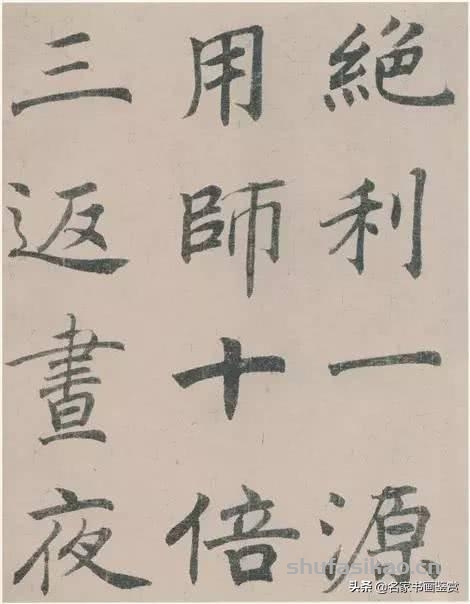 絕利一源
用師十倍
三返晝夜
shufasikao.cn
头条 @名家书画鉴赏